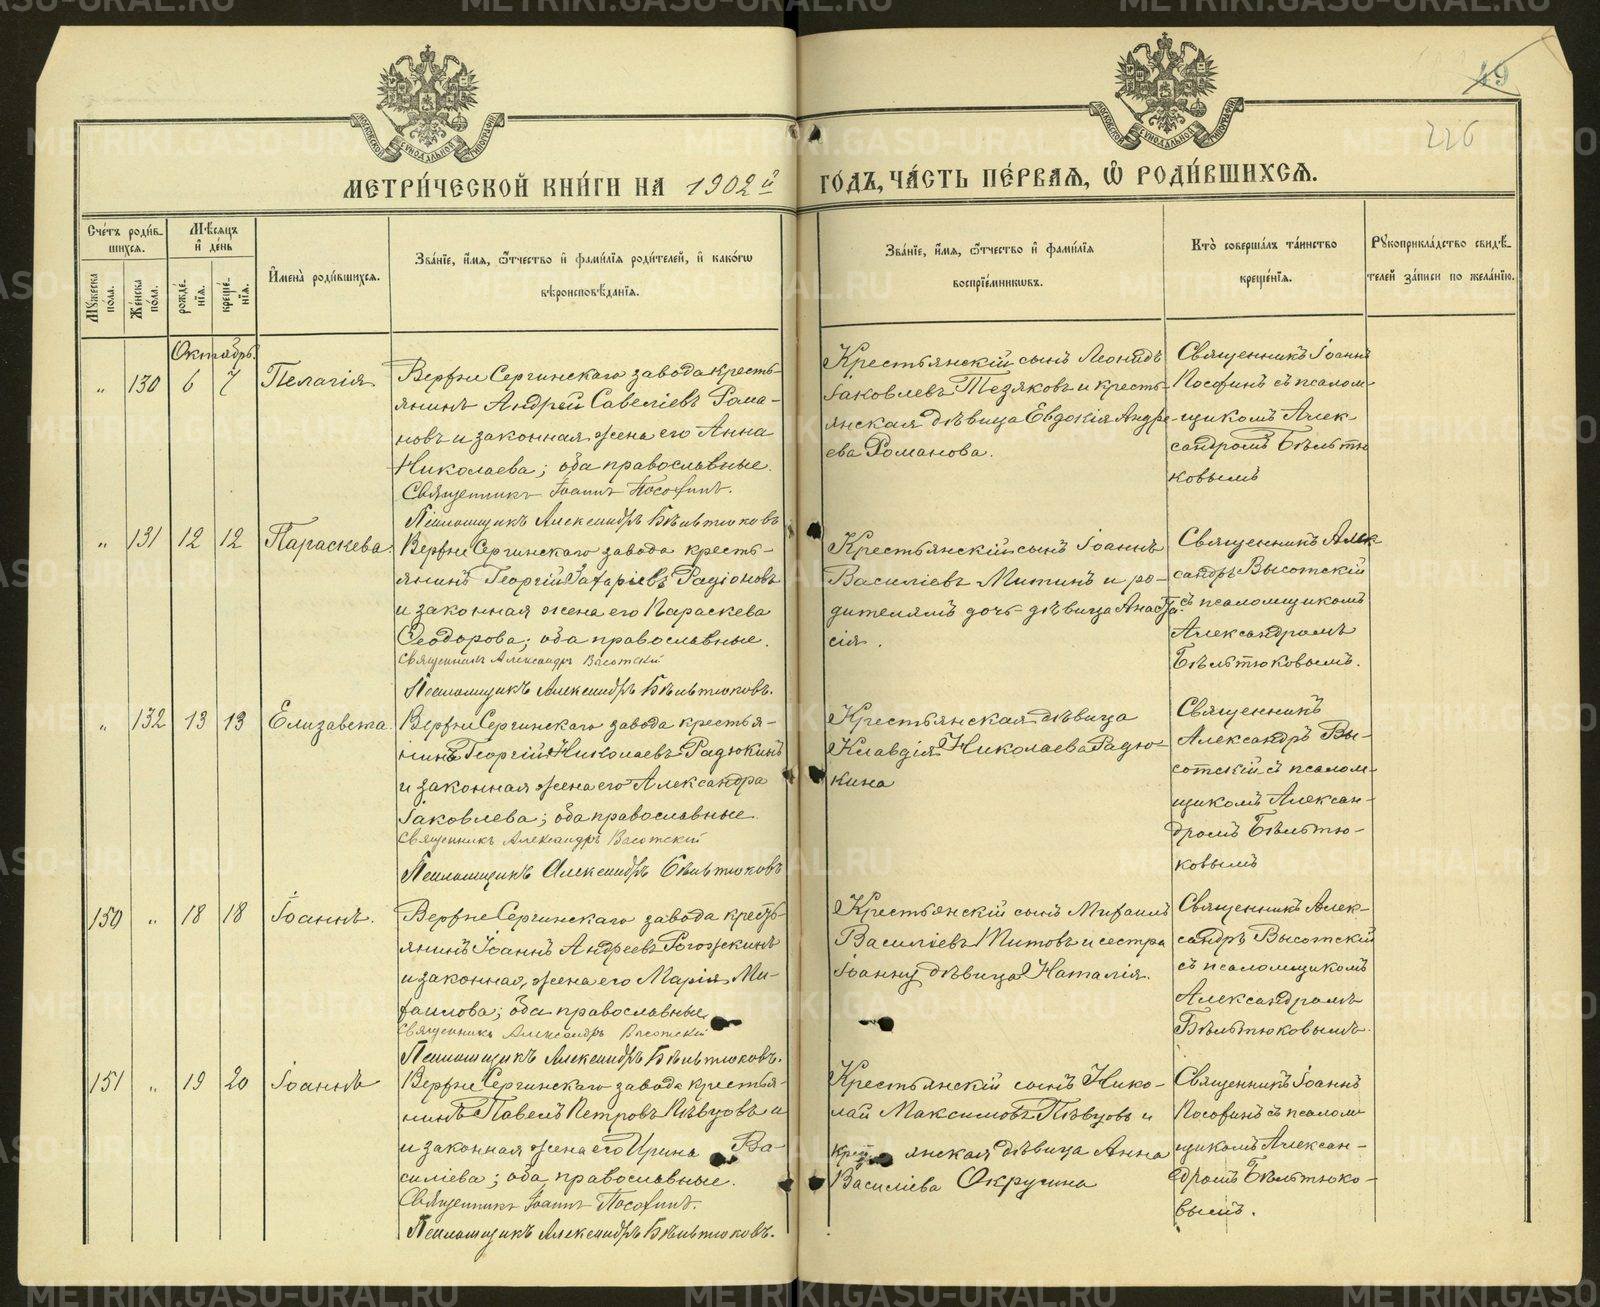 METRIKI.GASO-URAL.RU
49
226
МЕТРИ́ЧЕСКОЙ КНИ́ГИ НА 1902й ГОДЪ, ЧА́СТЬ ПЕ́РВАЯ, Ѡ РОДИ́ВШИХСЯ.
Сче́тъ роди́в-
шихся.
Му́жеска по́ла.
Же́нска по́ла.
Мѣ́сяцъ
и де́нь
рожде́-
нїя.
креще́-
нїя.
Имена̀ роди́вшихся.
Зва́нїе, и́мя, ѻ́тчество и фами́лїя роди́телей, и како́гѡ
вѣроисповѣ́данїя.
Зва́нїе, и́мя, ѻ́тчество и фами́лїя
воспрїе́мникѡвъ.
Кто̀ соверша́лъ та́инство
креще́нїя.
Рꙋкоприкла́дство свидѣ́-
телей за́писи по жела́нїю.
Октябрь.
" 130 6 7 Пелагія
Верхне Сергинскаго завода кресть-
янинъ Андрей Савеліевъ Рома-
новъ и законная жена его Анна
Николаева; оба православные.
Священникъ Іоаннъ Посохинъ.
Псаломщикъ Александръ Бѣльтюковъ
Крестьянскій сынъ Леонидъ
Іаковлевъ Тезяковъ и кресть-
янская дѣвица Евдокія Андре-
ева Романова.
Священникъ Іоаннъ
Посохинъ съ псалом-
щикомъ Алек-
сандромъ Бѣльтю
ковымъ
" 131 12 12 Параскева.
Верхне Сергинскаго завода кресть-
янинъ Георгій Захаріевъ Радіоновъ
и законная жена его Параскева
Ѳеодорова; оба православные.
Священникъ Александръ Высотскій
Псаломщикъ Александръ Бѣльтюковъ.
Крестьянскій сынъ Іоаннъ
Василіевъ Митинъ и ро-
дителямъ дочь дѣвица Анаста-
сія.
Священникъ Алек
сандръ Высотскій
съ псаломщикомъ
Александромъ
Бѣльтюковымъ.
" 132 13 13 Елизавета.
Верхне Сергинскаго завода крестья-
нинъ Георгій Николаевъ Радюкинъ
и законная жена его Александра
Іаковлева; оба православные.
Священникъ Александръ Высотскій
Псаломщикъ Александръ Бѣльтюковъ
Крестьянская дѣвица
Клавдія Николаева Радю-
кина
Священникъ
Александръ Вы-
сотскій съ псалом-
щикомъ Алексан-
дромъ Бѣльтю-
ковымъ
150 " 18 18 Іоаннъ.
Верхне Сергинскаго завода кресть-
янинъ Іоаннъ Андреевъ Рогожкинъ
и законная жена его Марія Ми-
хаилова; оба православные
Священникъ Александръ Высотскій
Псаломщикъ Александръ Бѣльтюковъ.
Крестьянскій сынъ Михаилъ
Василіевъ Титовъ и сестра
Іоанну дѣвица Наталія.
Священникъ Алек-
сандръ Высотский
съ псаломщикомъ
Александромъ
Бѣльтюковымъ.
151 " 19 20 Іоаннъ
Верхне Сергинскаго завода крестья-
нинъ Павелъ Петровъ Пѣвцовъ и
и законная жена его Ирина Ва-
силіева; оба православные.
Священникъ Іоаннъ Посохинъ.
Псаломщикъ Александръ Бѣльтюковъ.
Крестьянскій сынъ Нико-
лай Максимовъ Пѣвцовъ и
крестьянская дѣвица Анна
Василіева Округина
Священникъ Іоаннъ
Посохинъ съ псалом
щикомъ Алексан-
дромъ Бѣльтюко-
вымъ.